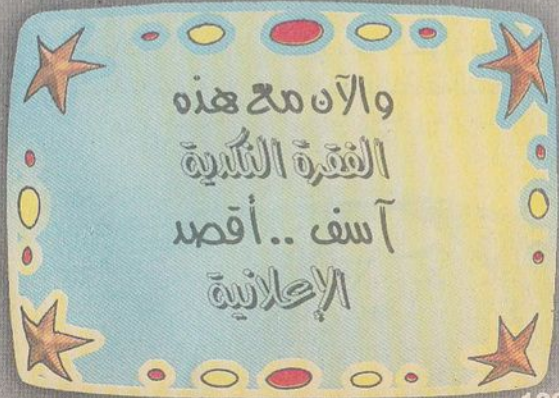 والآن مع هذه
الفقرة النكدية
آسف .. أقصد
الإعلانية